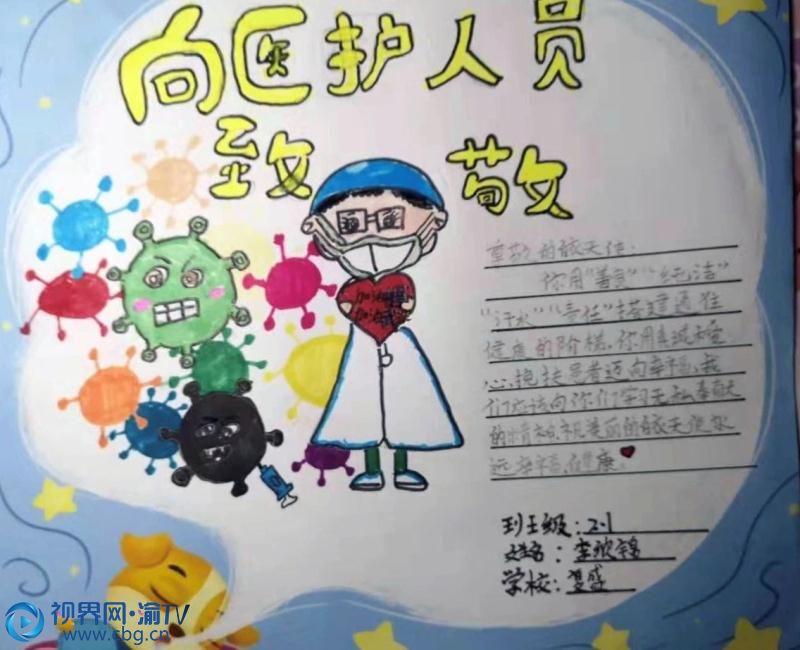 向医护人员
致敬
加油
加油
尊敬的白衣天使:
你用"善良""纯洁"
"汗水""责任"搭建通往
健康的阶梯。你用真诚和爱
心,搀扶患者迈向幸福,我
们应该向你们学习无私奉献
的精神,祝美丽的白衣天使永
远幸福,健康。
班级:2.1
姓名:李欣锦
学校:盛
视界网·渝TV
www.cbg.cn